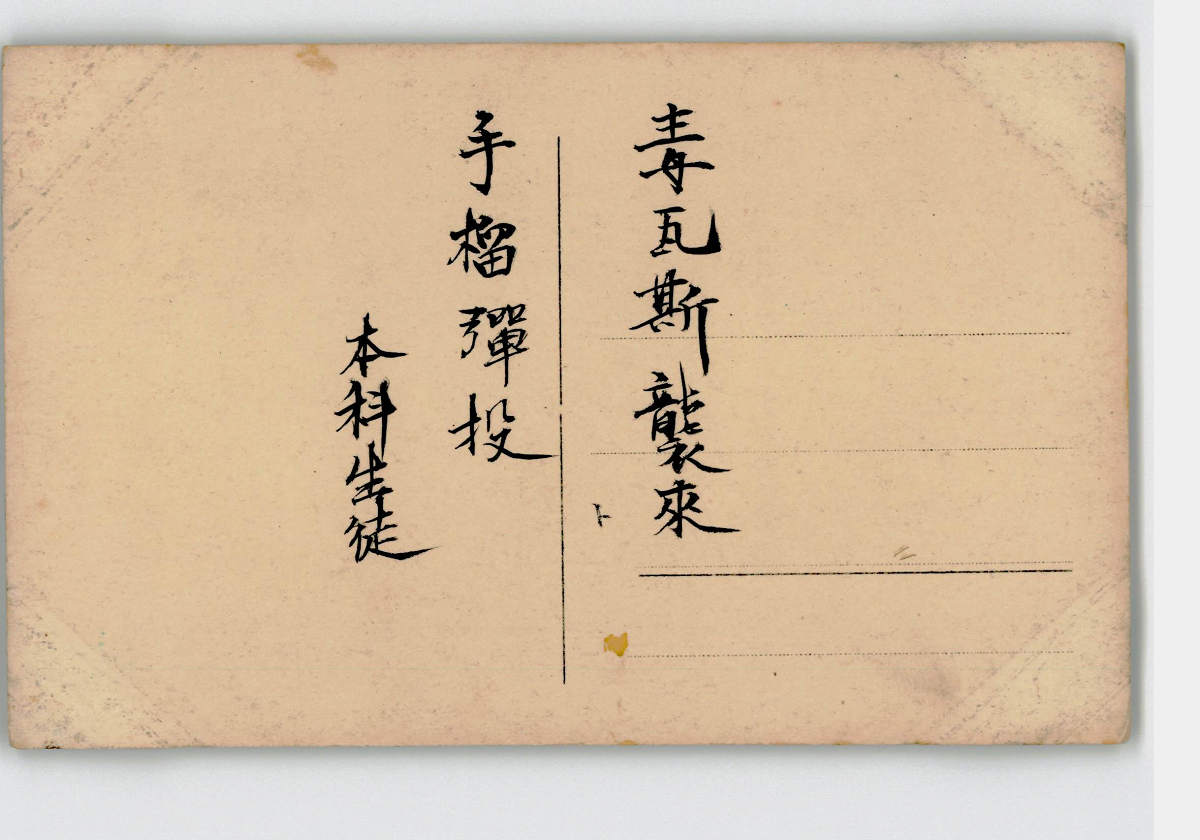 毒瓦斯襲來
ト
手榴彈投
本科生徒